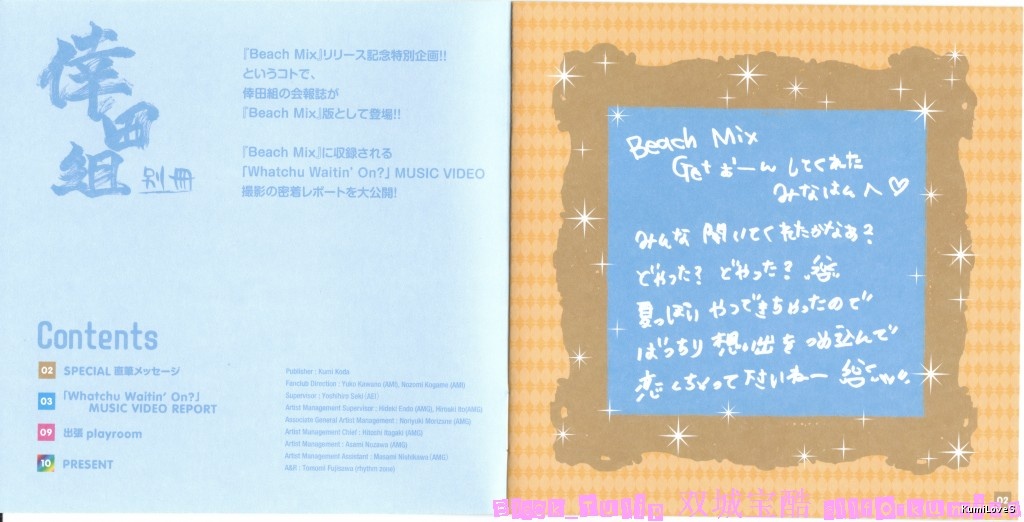 倖田組 別冊
『Beach Mix』リリース記念特別企画!!
というコトで、
倖田組の会報誌が
『Beach Mix』版として登場!!
『Beach Mix』に収録される
「Whatchu Waitin' On?」 MUSIC VIDEO
撮影の密着レポートを大公開!
Contents
02 SPECIAL 直筆メッセージ
03 「Whatchu Waitin' On?」
MUSIC VIDEO REPORT
09 出張 playroom
10 PRESENT
Publisher : Kumi Koda
Fanclub Direction : Yuko Kawano (AMI), Nozomi Kogame (AMI)
Supervisor : Yoshihiro Seki (AEI)
Artist Management Supervisor : Hideki Endo (AMG), Hiroaki Ito(AMG)
Associate General Artist Management : Noriyuki Morizane (AMG)
Artist Management Chief : Hitoshi Itagaki (AMG)
Artist Management : Asami Nozawa (AMG)
Artist Management Assistant : Masami Nishikawa (AMG)
A&R : Tomomi Fujisawa (rhythm zone)
Beach Mix
Get おーん してくれた
みなはんへ♡
みんな 聞いてくれたかなぁ?
どやった? どやった? 笑
夏っぽい やつできちゃったので
ばっちり 想い出を つめ込んで
恋しちゃって下さいねー
02
双城宝酷
KumiLoveS